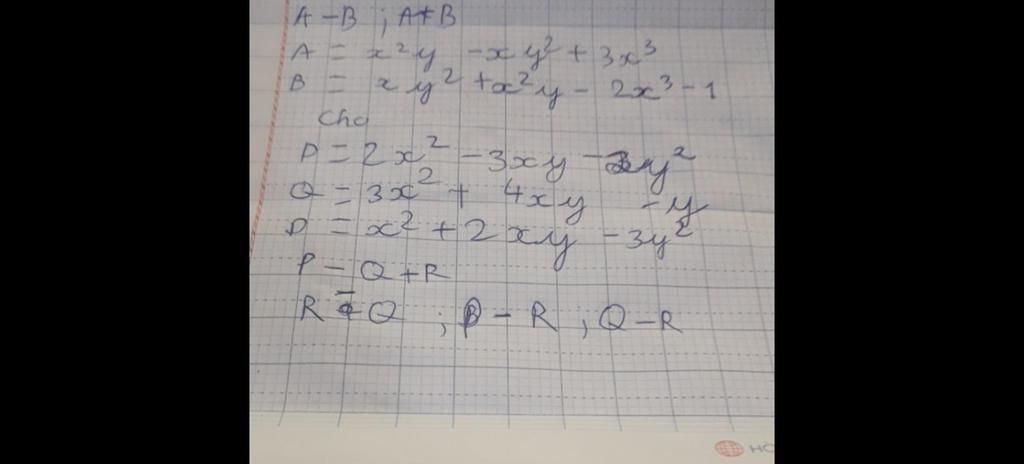 A - B ; A + B
A = x²y - xy² + 3x³
B = xy² + x²y - 2x³ - 1
Cho
P = 2x² - 3xy - y²
Q = 3x² + 4xy - y
P = x² + 2xy - 3y²
P - Q + R
R Q ; P - R ; Q - R
HO